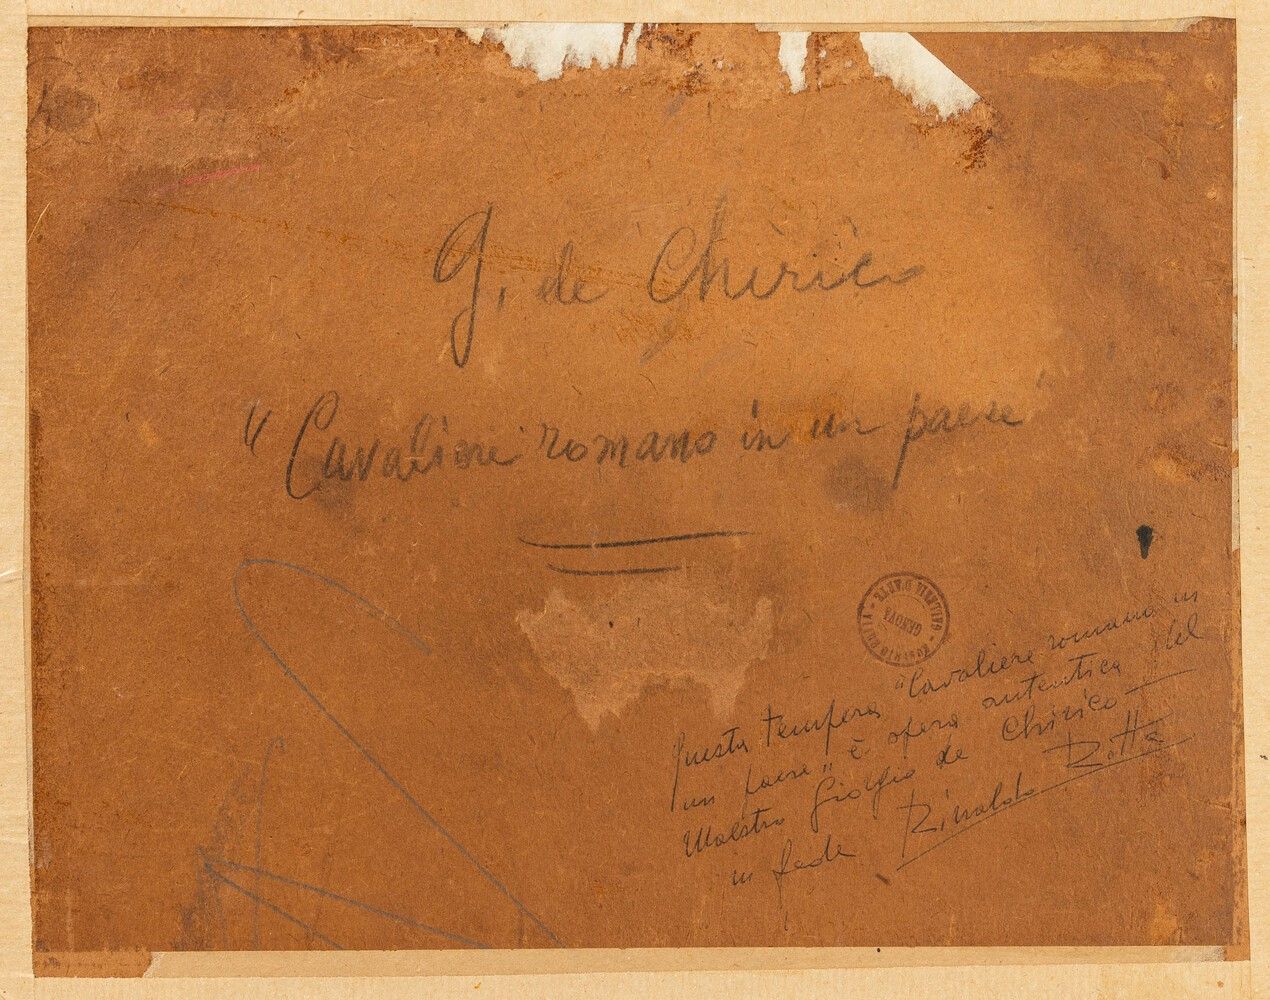 G. de Chirico
"Cavaliere romano in un paese"
GALLERIA D'ARTE
GENOVA
Questa tempera "Cavaliere romano in
un paese" è opera autentica del
Maestro Giorgio de Chirico
in fede Rinaldo Rotta